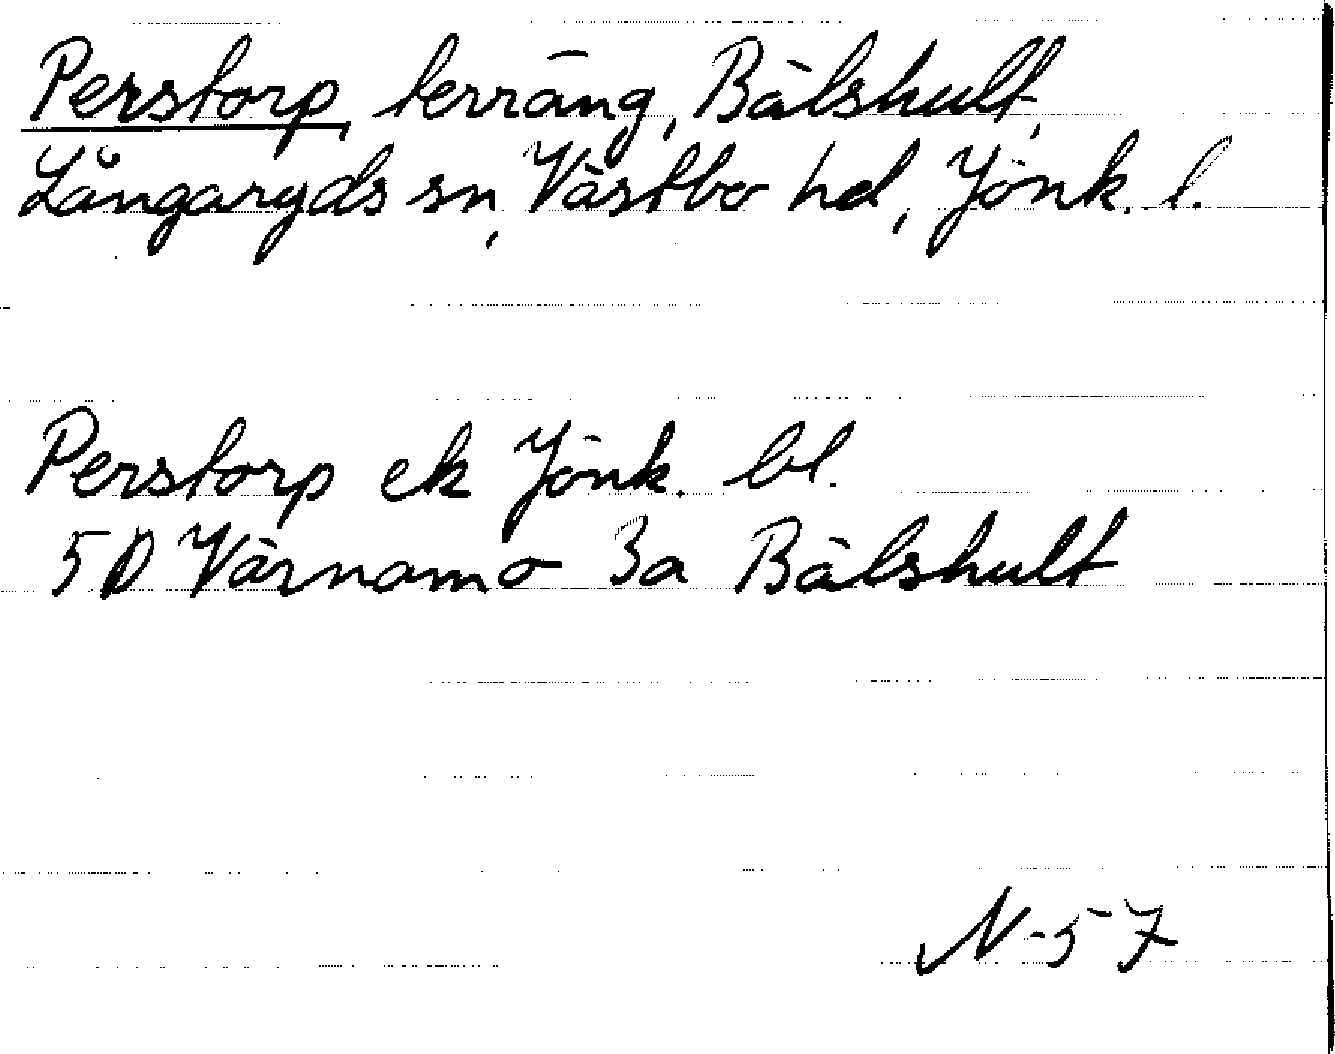 Perstorp, terräng, Bälshult,
Långaryds sn, Västbo hd, Jönk. l.
Perstorp ek Jönk. bl.
5D Värnamo 3a Bälshult
N-57